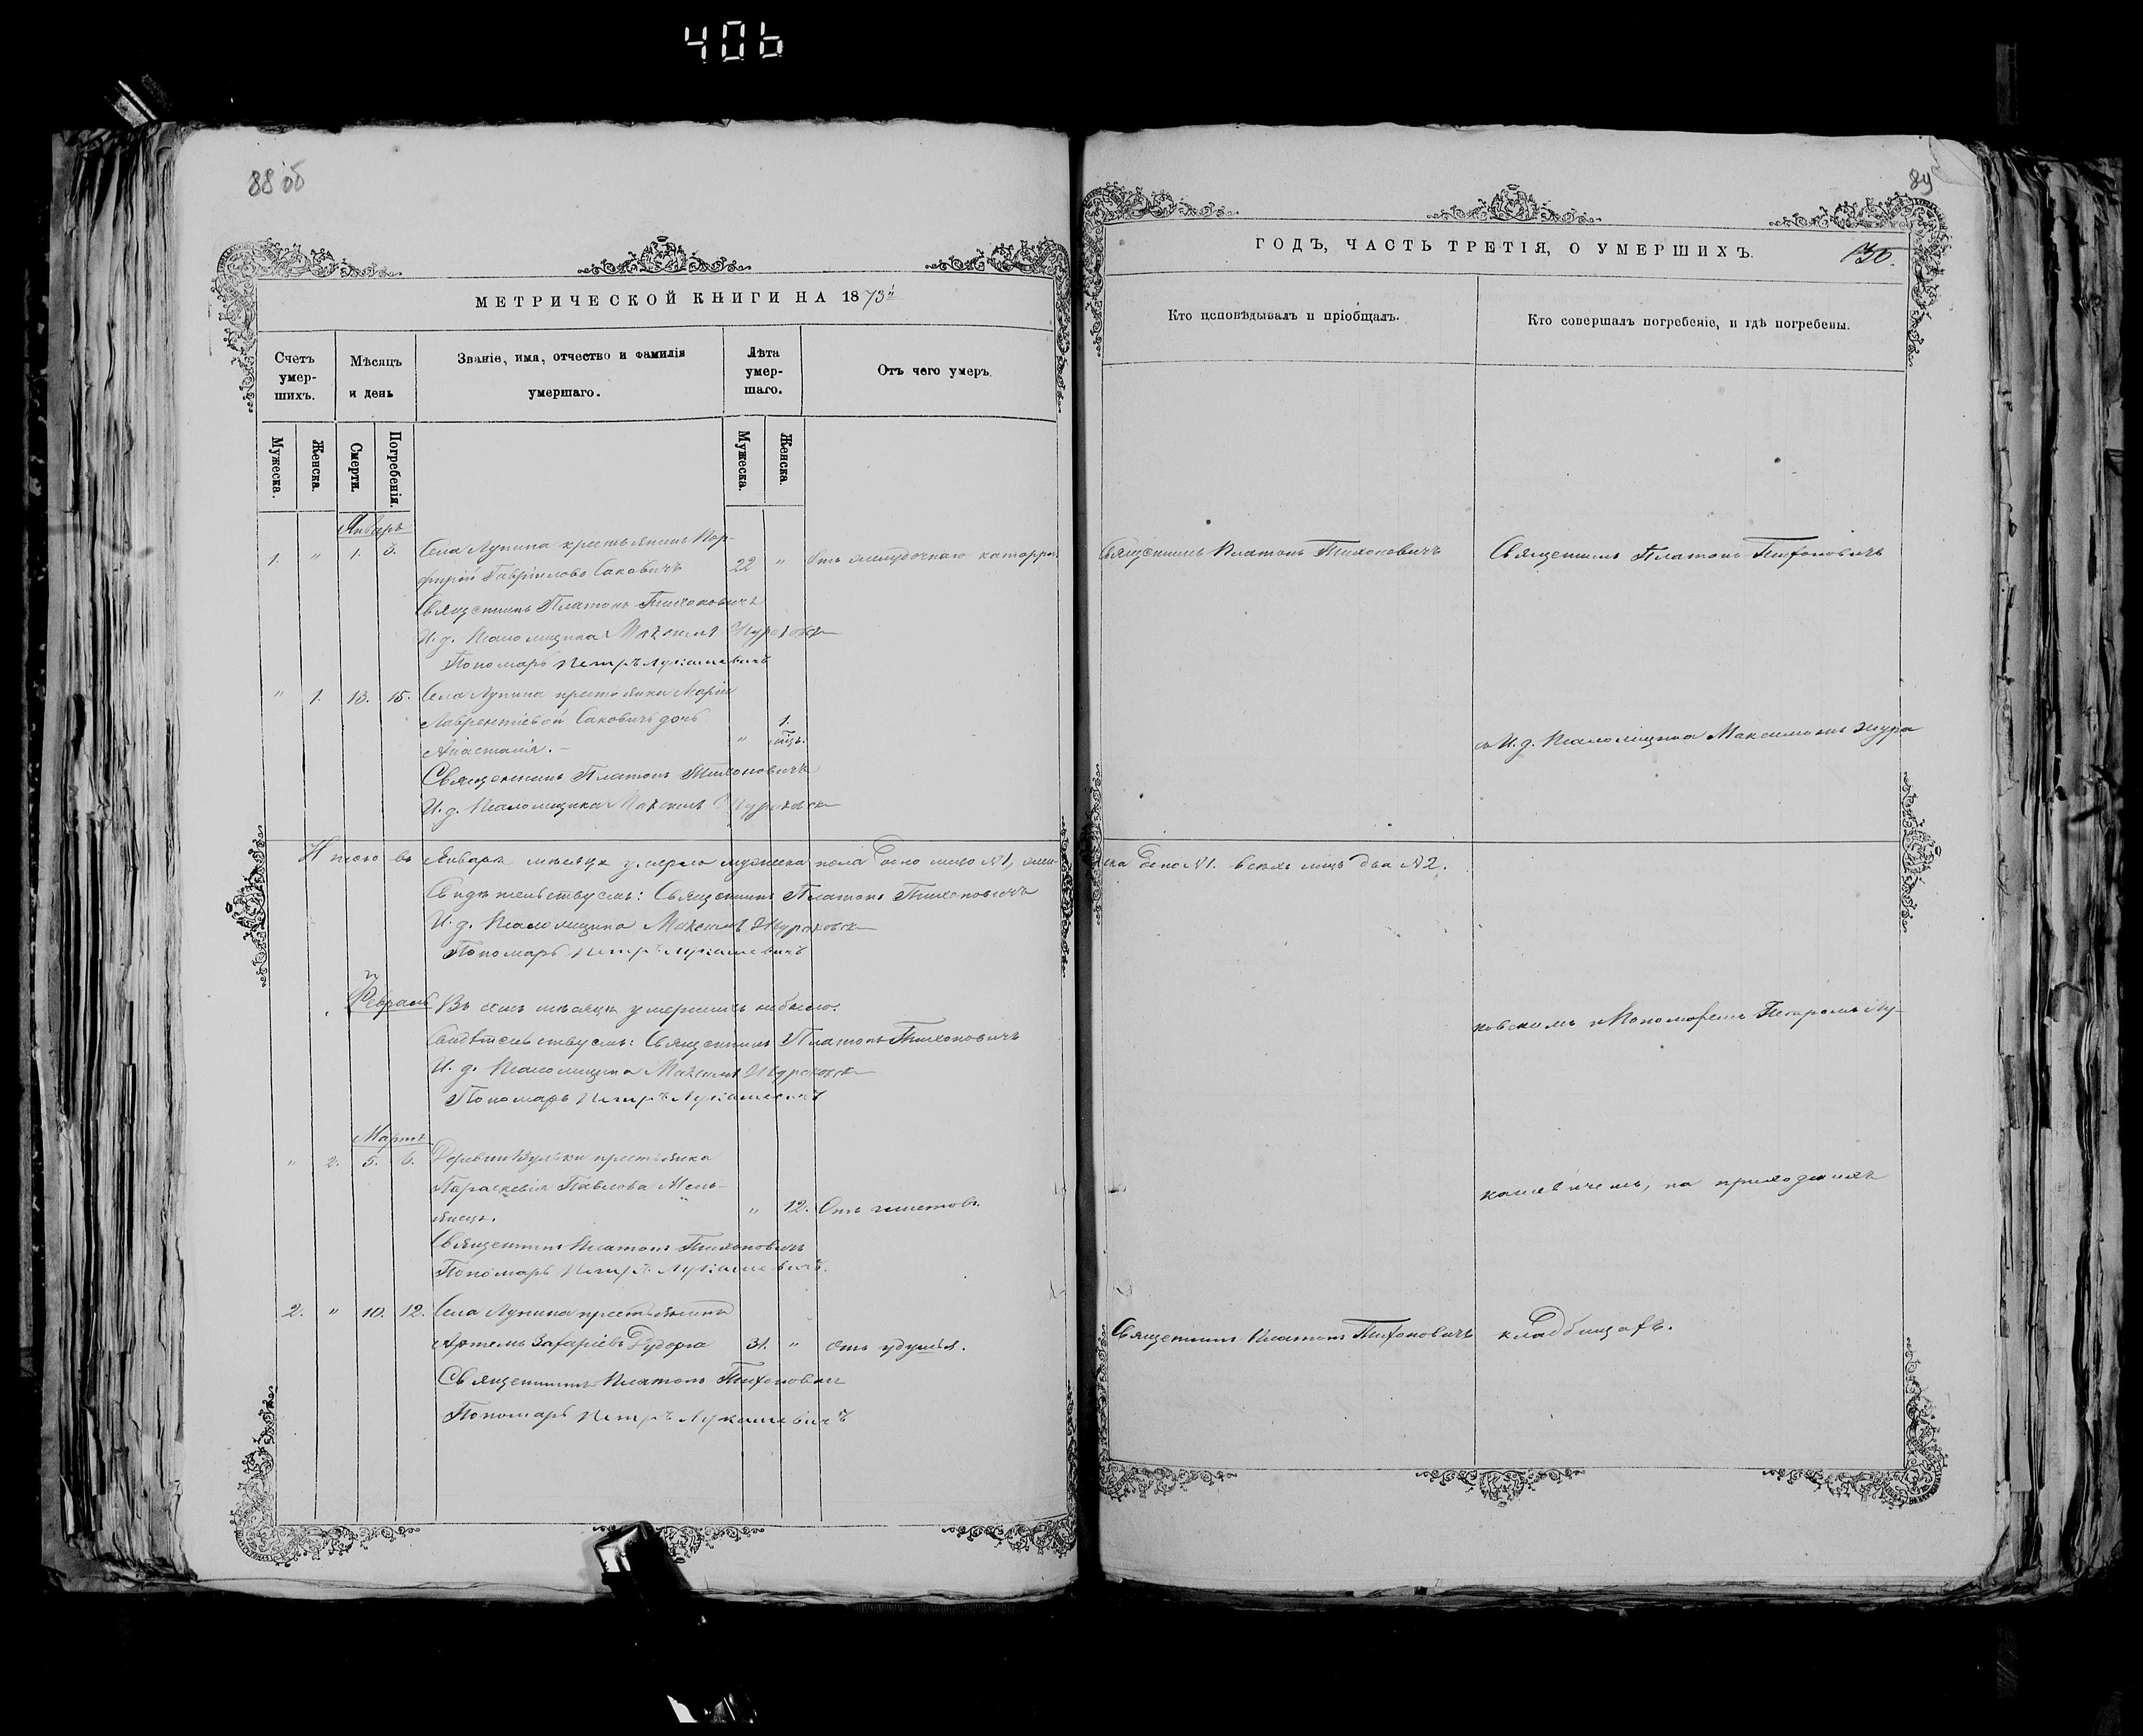 406
88 об
МЕТРИЧЕСКОЙ КНИГИ НА 1873й
Счетъ умер-шихъ.
Мѣсяцъ и день
Званіе, имя, отчество и фамилія умершаго.
Лѣта умер-шаго.
Отъ чего умеръ.
Мужеска.
Женска.
Смерти.
Погребенія.
Мужеска.
Женска.
Январь
1. " 1. 3. Села Лунина крестьянинъ Пор-
фирій Гавріиловъ Саковичъ 22 " Отъ желудочнаго катарра.
Священникъ Платонъ Тихоновичъ
И. д. Псаломщика Максимъ Журовск
Пономарь Петръ Лукашевичъ
" 1. 13. 15. Села Лунина крестьянки Маріи
Лаврентіевой Саковичъ дочь
Анастасія. " 1. мѣс.
Священникъ Платонъ Тихоновичъ
И. д. Псаломщика Максимъ Журовск
Итого въ Январѣ мѣсяцѣ умерло мужеска пола одно лицо №1, жен-
Свидѣтельствуемъ: Священникъ Платонъ Тихоновичъ
И. д. Псаломщика Максимъ Журовск
Пономарь Петръ Лукашевичъ
Февраль Въ семъ мѣсяцѣ умершихъ небыло.
Свидѣтельствуемъ: Священникъ Платонъ Тихоновичъ
И. д. Псаломщика Максимъ Журовск
Пономарь Петръ Лукашевичъ
Мартъ
" 2. 5. 6. Деревни Вульки крестьянка
Параскевія Павлова Мель-
" 12. Отъ
Священникъ Платонъ Тихоновичъ
Пономарь Петръ Лукашевичъ.
2. " 10. 12. Села Лунина крестьянинъ
Артемъ Захаріевъ 31. " отъ удушья.
Священникъ Платонъ Тихонович
Пономарь Петръ Лукашевичъ
89
ГОДЪ, ЧАСТЬ ТРЕТІЯ, О УМЕРШИХЪ.
Кто исповѣдывалъ и пріобщалъ.
Кто совершалъ погребеніе, и гдѣ погребены.
Священникъ Платонъ Тихоновичъ
Священникъ Платонъ Тихоновичъ
съ И. д. Псаломщика Максимомъ Журо
ска одно №1. всѣхъ лицъ два №2.
ковскимъ и Пономаремъ Петромъ Лу-
кашевичемъ, на приходскихъ
Священникъ Платонъ Тихоновичъ
кладбищахъ.